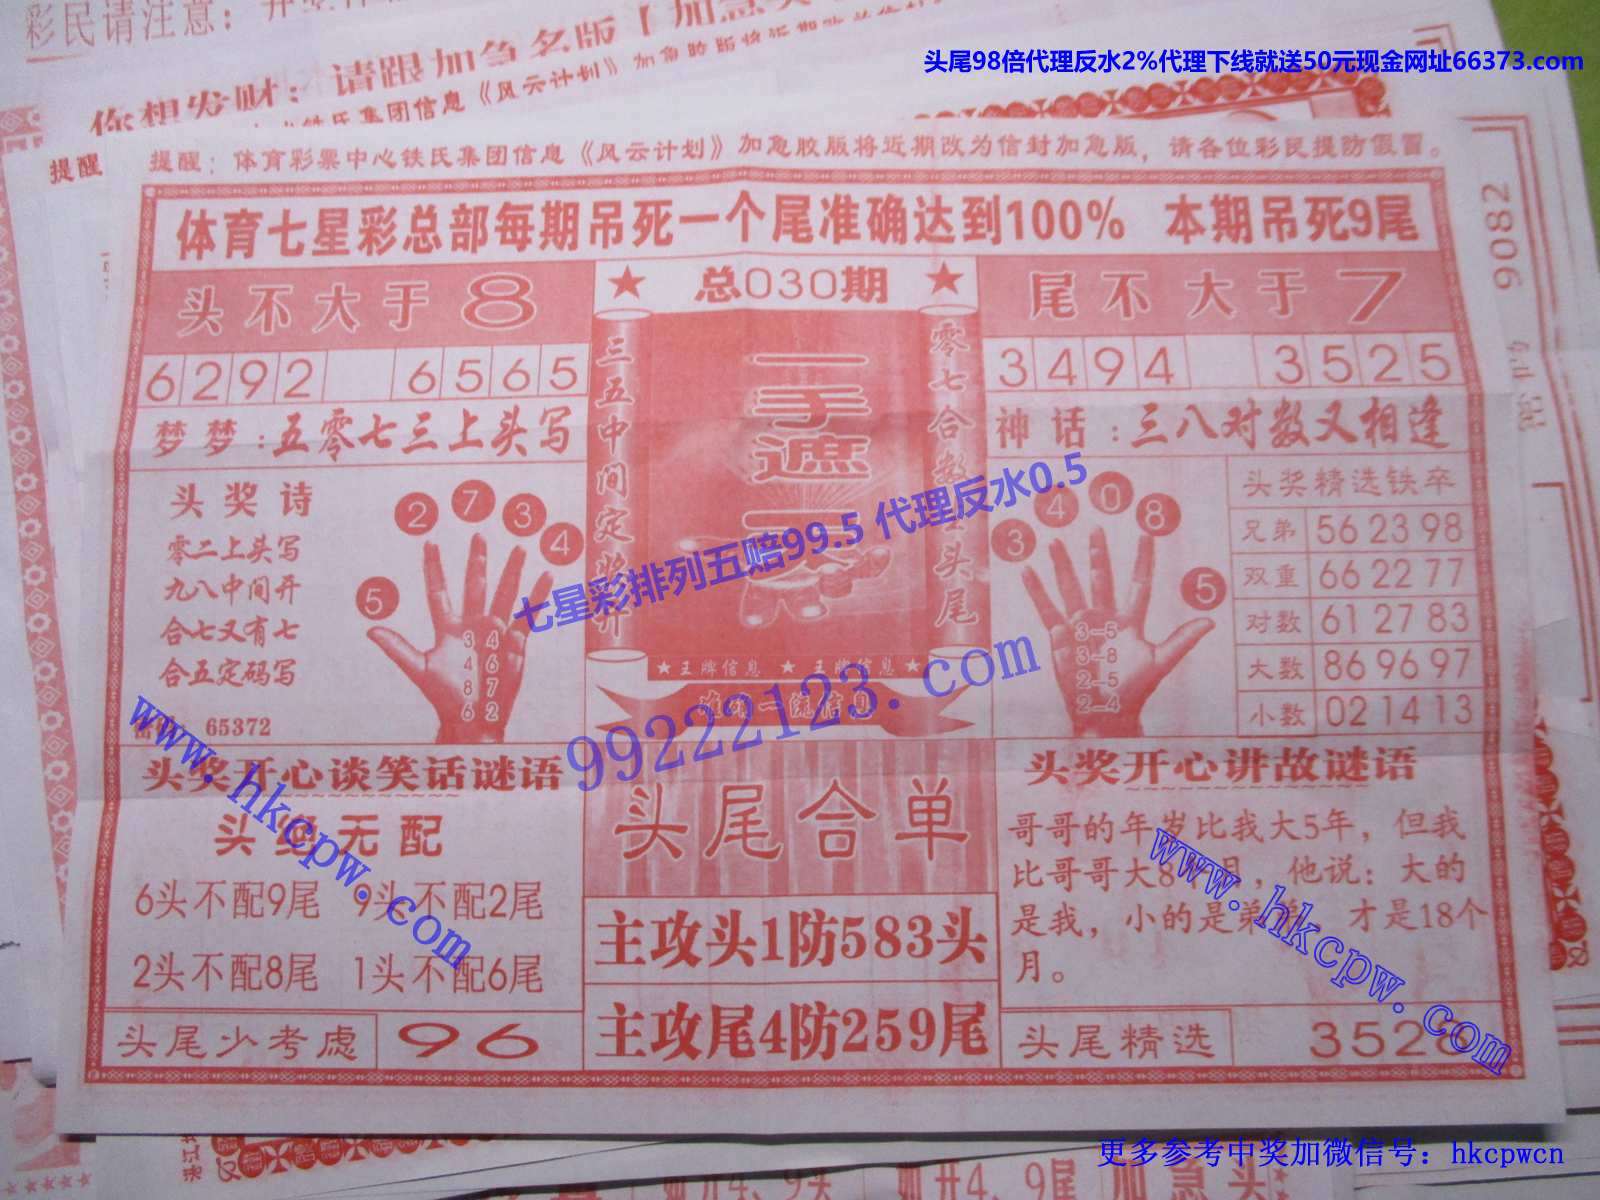 彩民请注意：
头尾98倍代理反水2%代理下线就送50元现金网址66373.com
你想发财：请跟加急名版【加急
铁氏集团信息《风云计划》加急胶版将近期改
提醒
提醒：体育彩票中心铁氏集团信息《风云计划》加急胶版将近期改为信封加急版，请各位彩民提防假冒。
体育七星彩总部每期吊死一个尾准确达到100% 本期吊死9尾
9082
头不大于8
★ 总030期 ★
尾不大于7
6292 6565
3494 3525
三五中间定奖开
一手遮天
零七合数 头尾
梦梦：五零七三上头写
神话：三八对数又相逢
头奖诗
零二上头写
九八中间开
合七又有七
合五定码写
65372
5 2 7 3 4
3 4
4 6
8 7
6 2
3 4 0 8 5
3-5
3-8
2-5
2-4
头奖精选铁卒
兄弟 56 23 98
双重 66 22 77
对数 61 27 83
大数 86 96 97
小数 02 14 13
七星彩排列五赔99.5 代理反水0.5
★王牌信息 ★王牌信息★
准确一流信息
99222123.com
www.hkcpw.com
头奖开心谈笑话谜语
头绝无配
6头不配9尾 9头不配2尾
2头不配8尾 1头不配6尾
头尾少考虑 96
头尾合单
主攻头1防583头
主攻尾4防259尾
头奖开心讲故谜语
哥哥的年岁比我大5年，但我
比哥哥大8 月，他说：大的
是我，小的是弟弟 才是18个
月。
www.hkcpw.com
头尾精选 352
更多参考中奖加微信号：hkcpwcn
如开4、9头
如开4、9尾
加急头